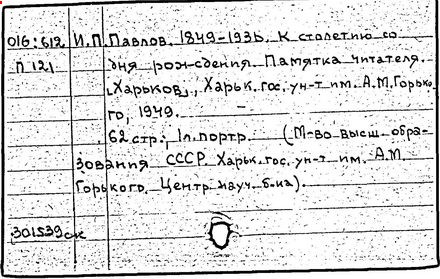 016:612 И.П.Павлов. 1849-1936. К столетию со
П 121 дня рождения. Памятка читателя.
[Харьков], Харьк. гос. ун-т им. А.М.Горько-
го, 1949.
62 стр; 1 л. портр. (М-во высш. обра-
зования СССР Харьк. гос. ун-т им. А.М.
Горького. Центр. науч. б-ка).
301539 ск